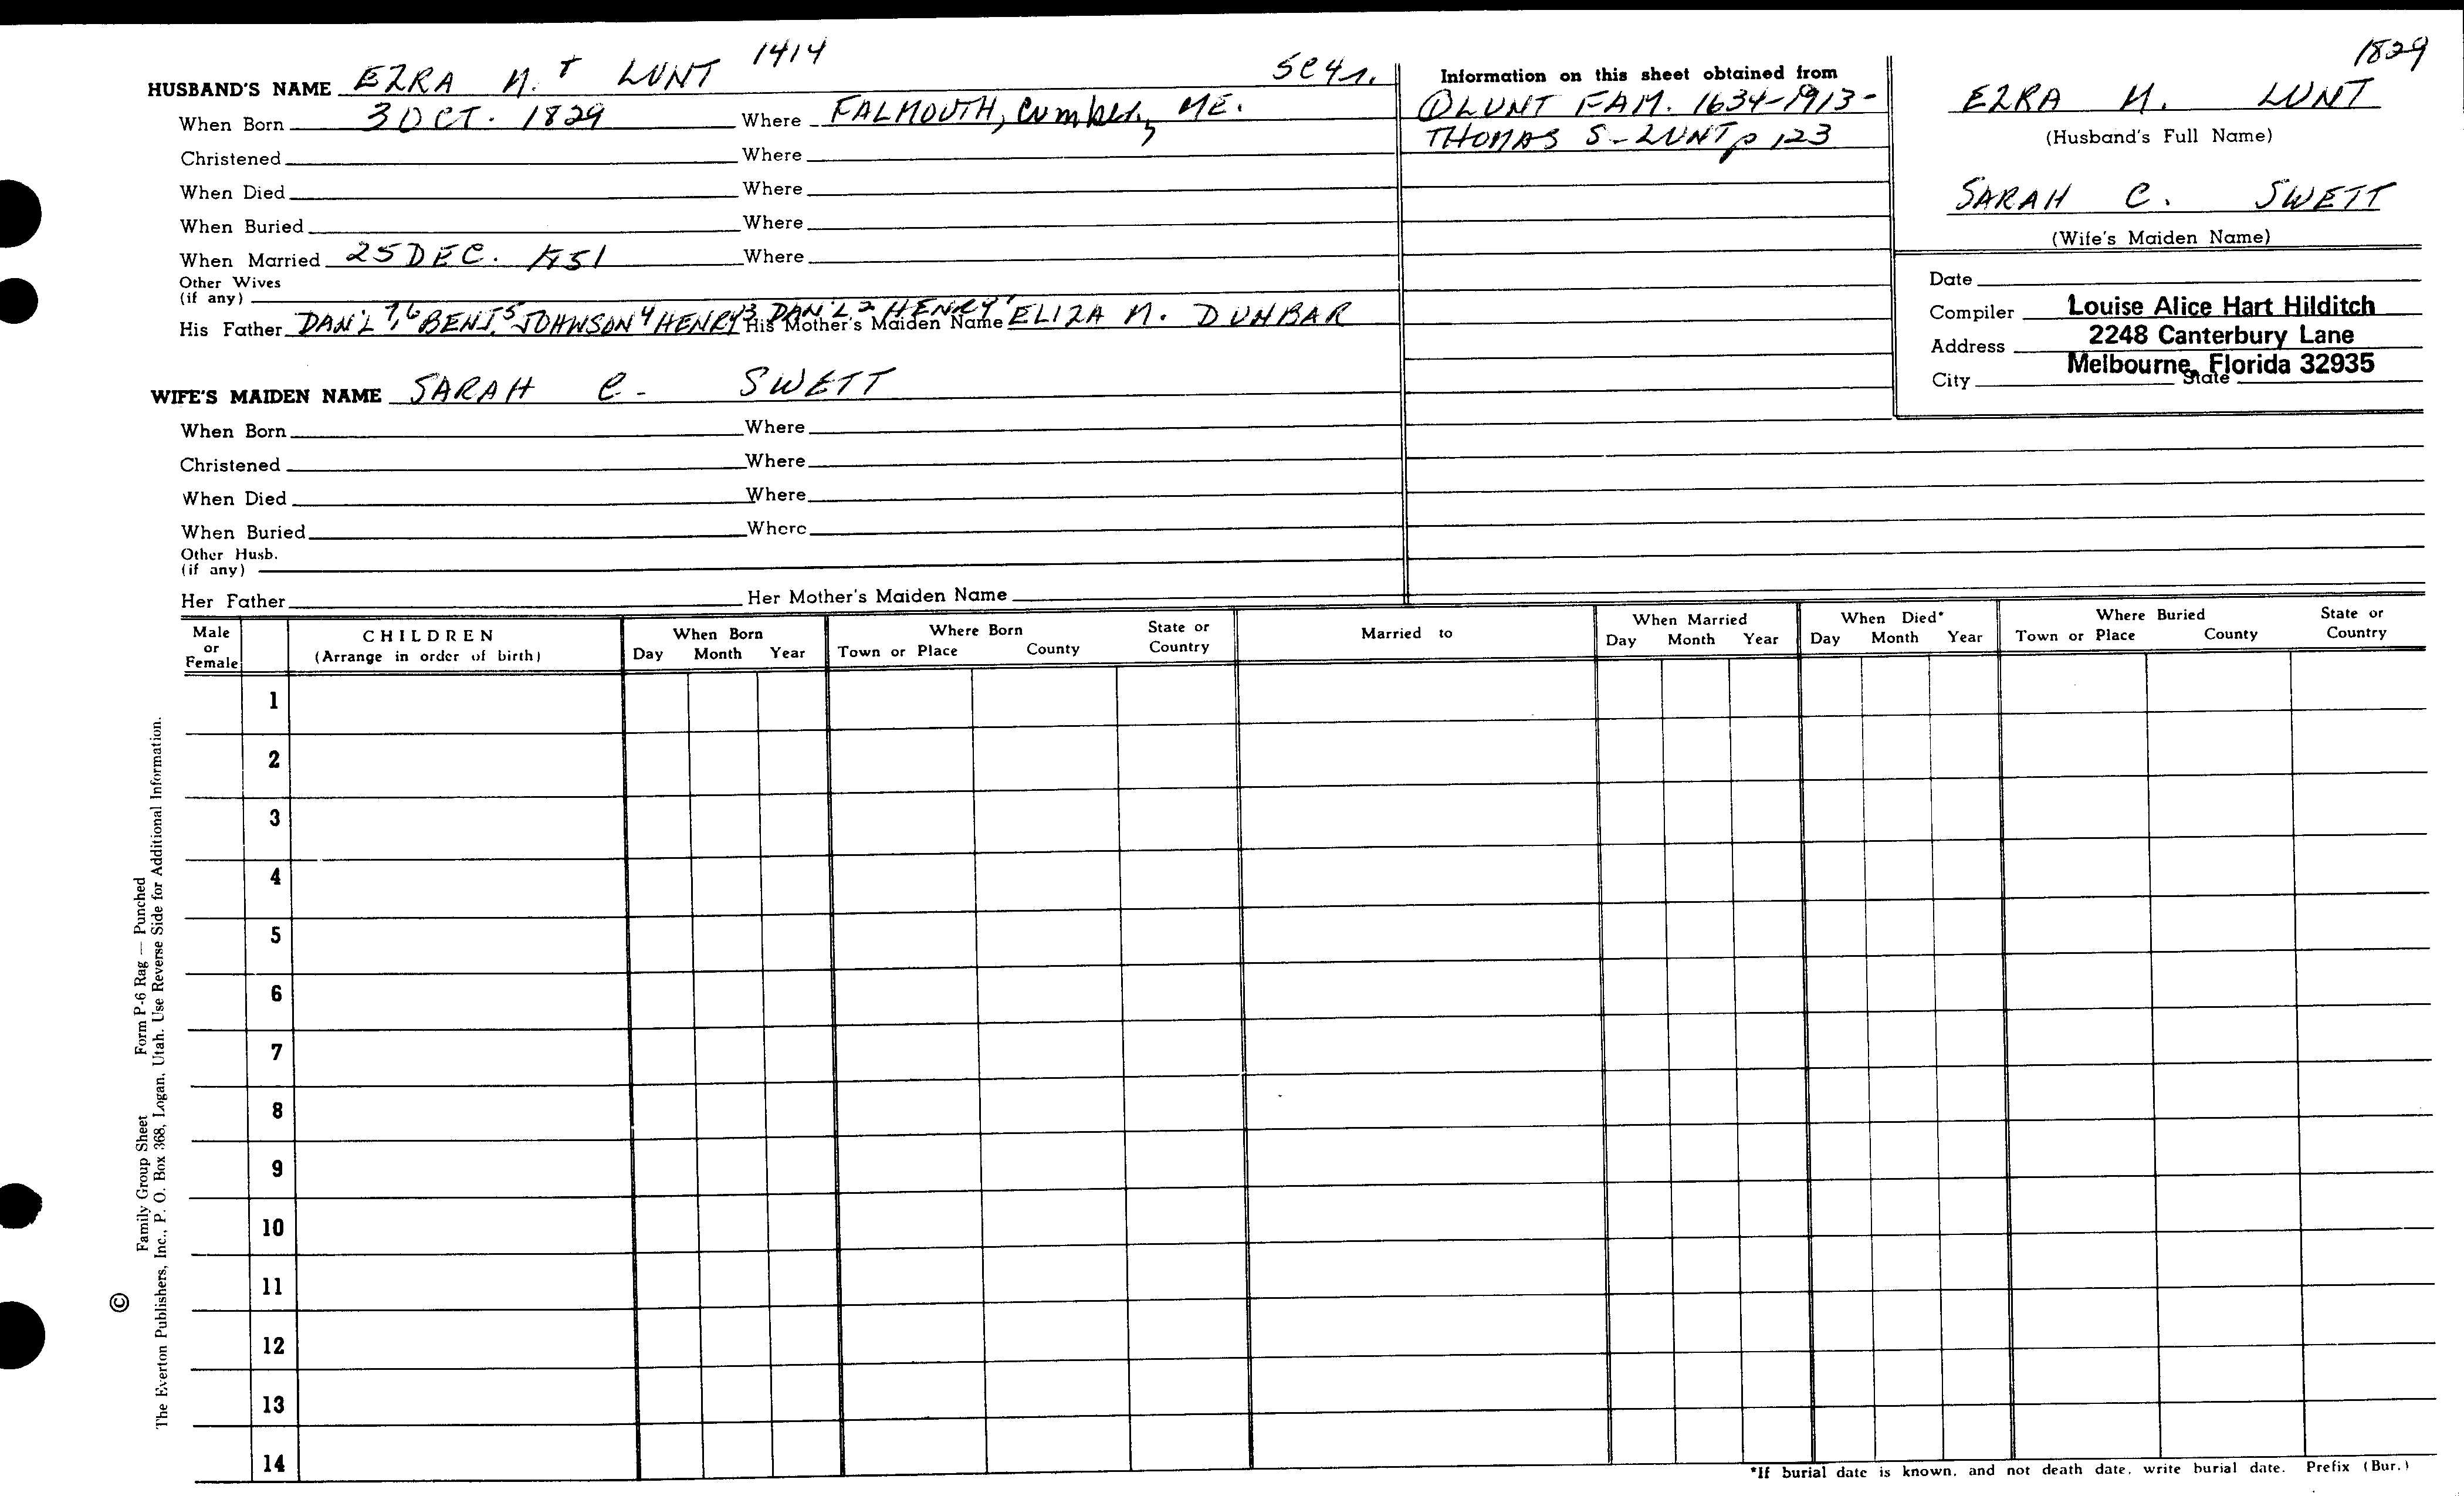 1414
1829
HUSBAND'S NAME EZRA M. + LUNT
When Born 3 OCT. 1829 Where FALMOUTH, Cumber., ME.
Christened Where
When Died Where
When Buried Where
When Married 25 DEC. 1851 Where
Other Wives
(if any)
His Father DAN'L 7, 6 BENJ. 5 JOHNSON 4 HENRY 3 DAN'L 2 HENRY 1 His Mother's Maiden Name ELIZA M. DUNBAR
WIFE'S MAIDEN NAME SARAH C. SWETT
When Born Where
Christened Where
When Died Where
When Buried Where
Other Husb.
(if any)
Her Father Her Mother's Maiden Name
Information on this sheet obtained from
① LUNT FAM. 1634-1913-
THOMAS S. LUNT p 123
EZRA M. LUNT
(Husband's Full Name)
SARAH C. SWETT
(Wife's Maiden Name)
Date
Compiler Louise Alice Hart Hilditch
Address 2248 Canterbury Lane
Melbourne, Florida 32935
City State
Male or Female
CHILDREN
(Arrange in order of birth)
When Born
Day Month Year
Where Born
Town or Place County State or Country
Married to
When Married
Day Month Year
When Died*
Day Month Year
Where Buried
Town or Place County State or Country
1
2
3
4
5
6
7
8
9
10
11
12
13
14
*If burial date is known, and not death date, write burial date. Prefix (Bur.)
©
Family Group Sheet Form P-6 Rag — Punched
The Everton Publishers, Inc., P. O. Box 368, Logan, Utah. Use Reverse Side for Additional Information.